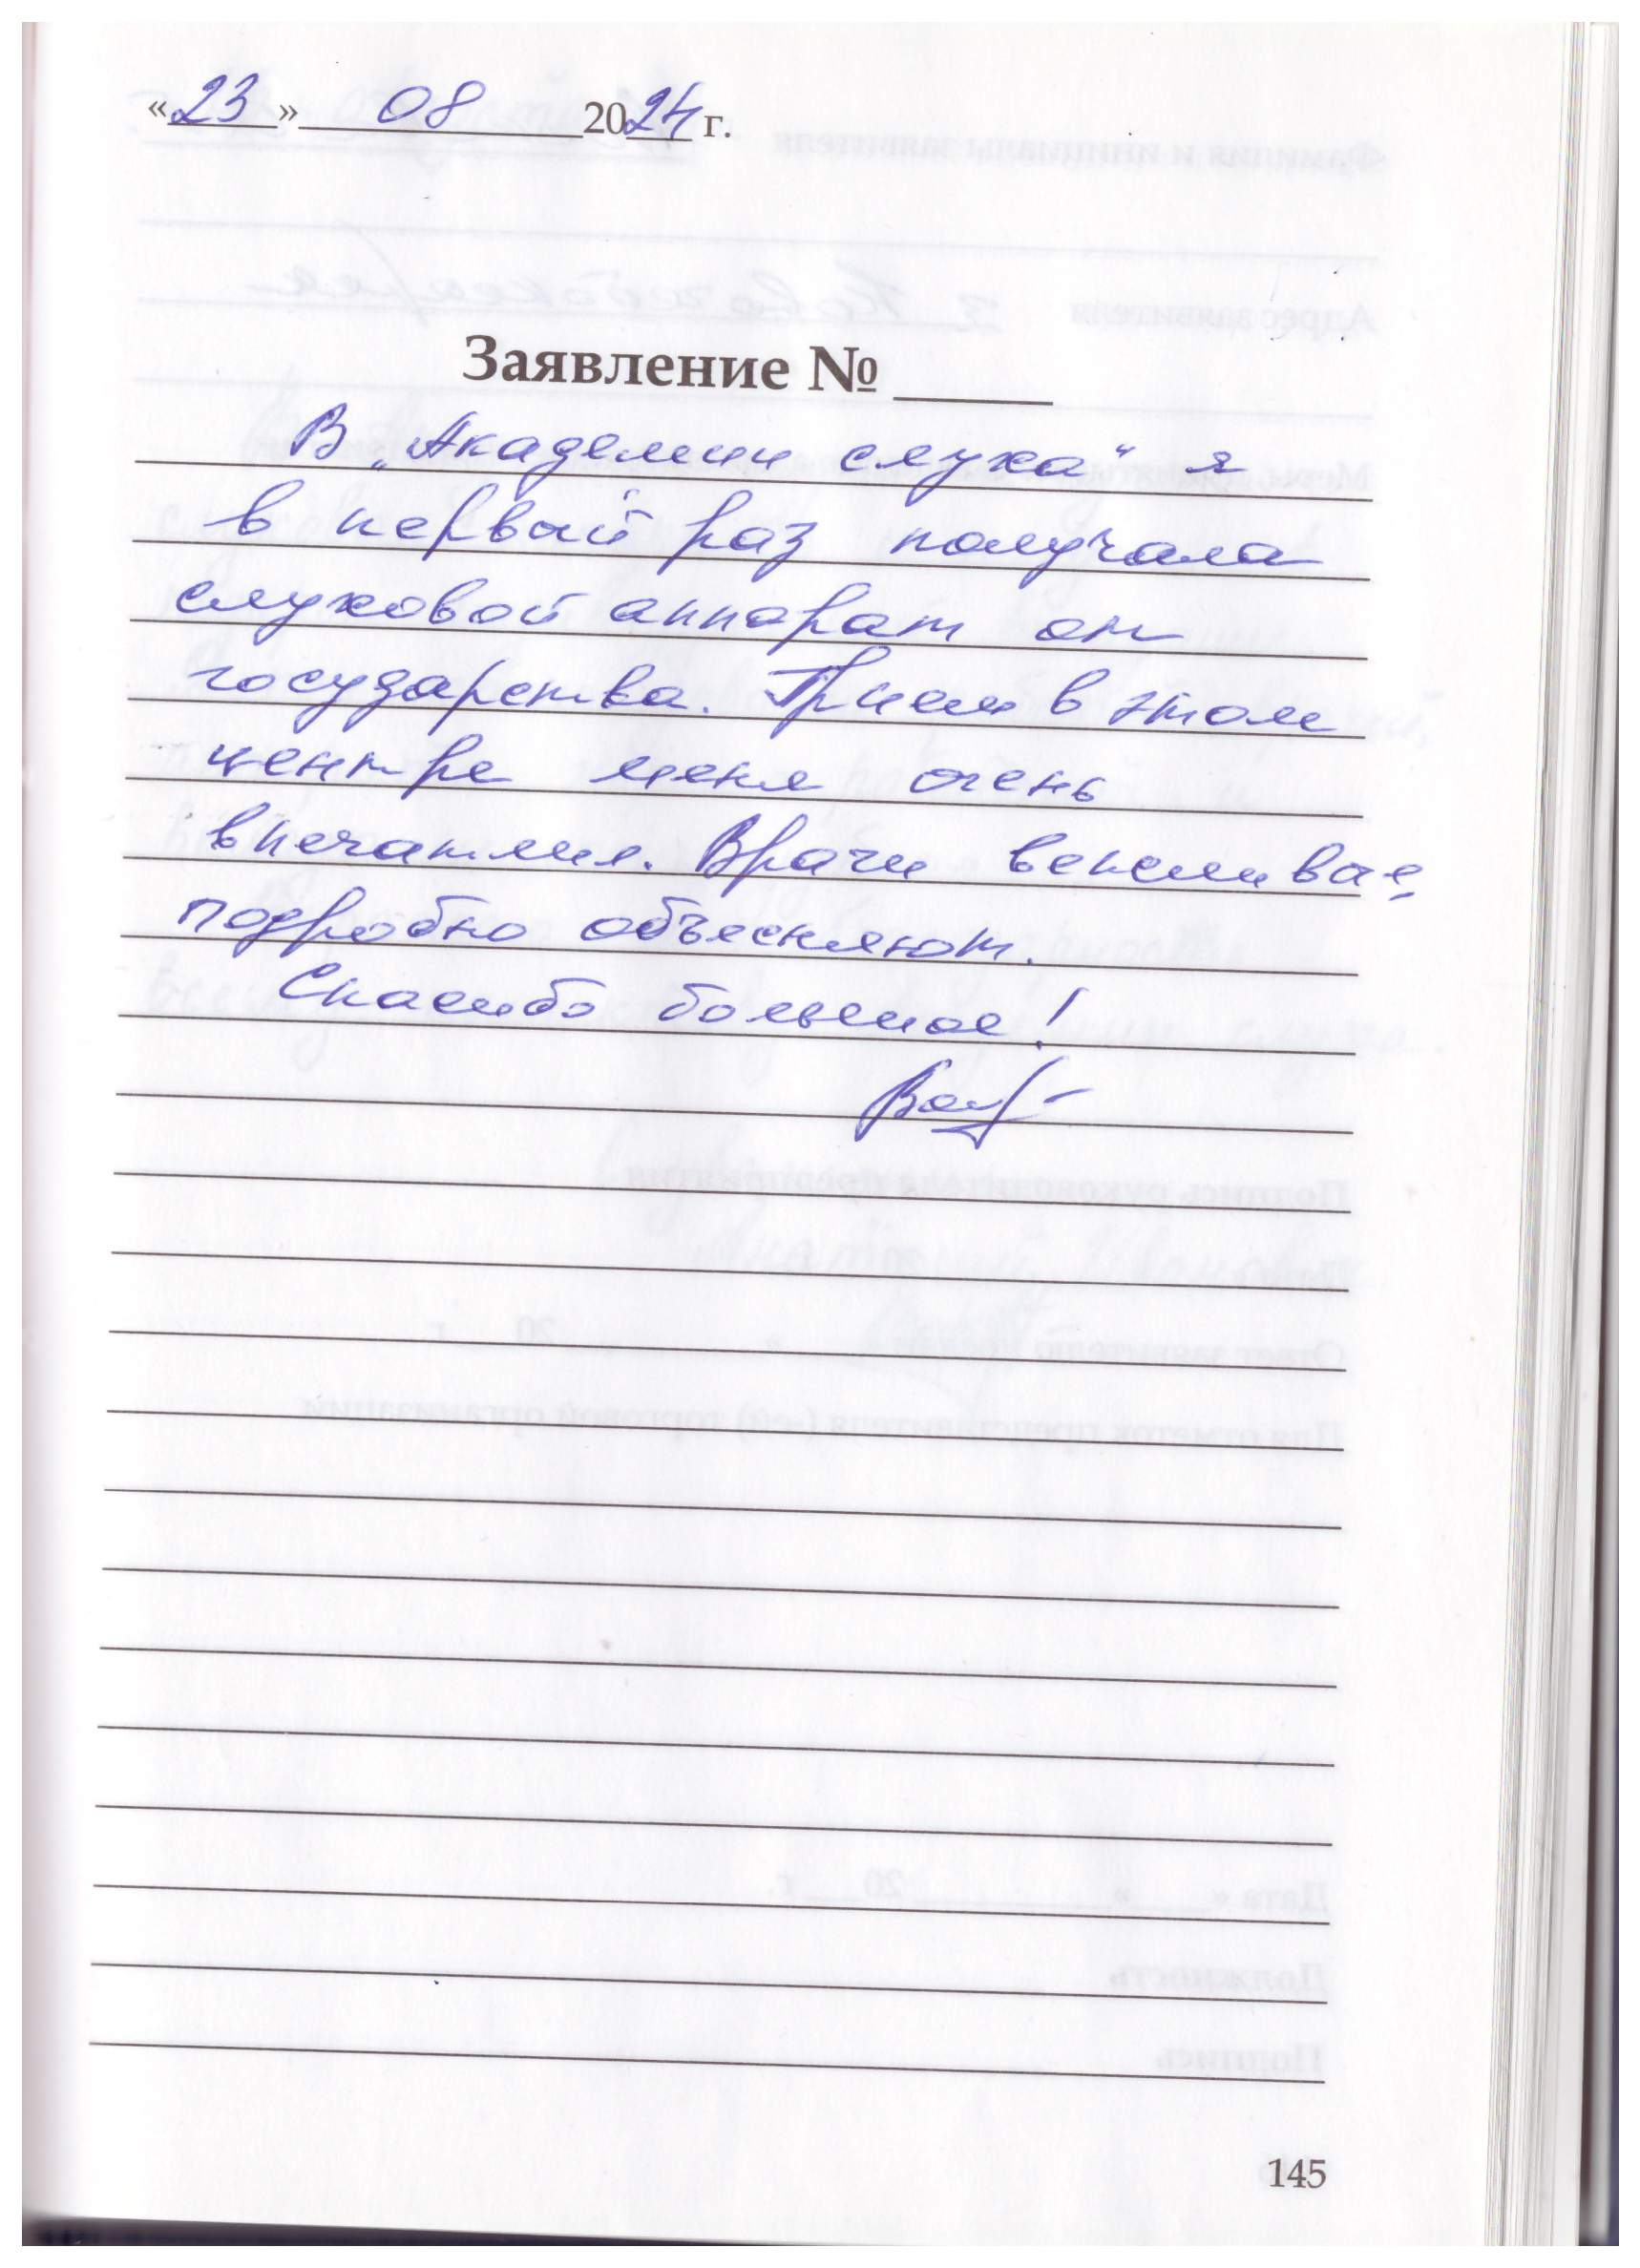 «23» 08 2024 г.
Заявление №
В „Академии слуха“ я
в первый раз получала
слуховой аппарат от
государства. Прием в этом
центре меня очень
впечатлил. Врачи вежливые,
подробно объясняют.
Спасибо большое!
145